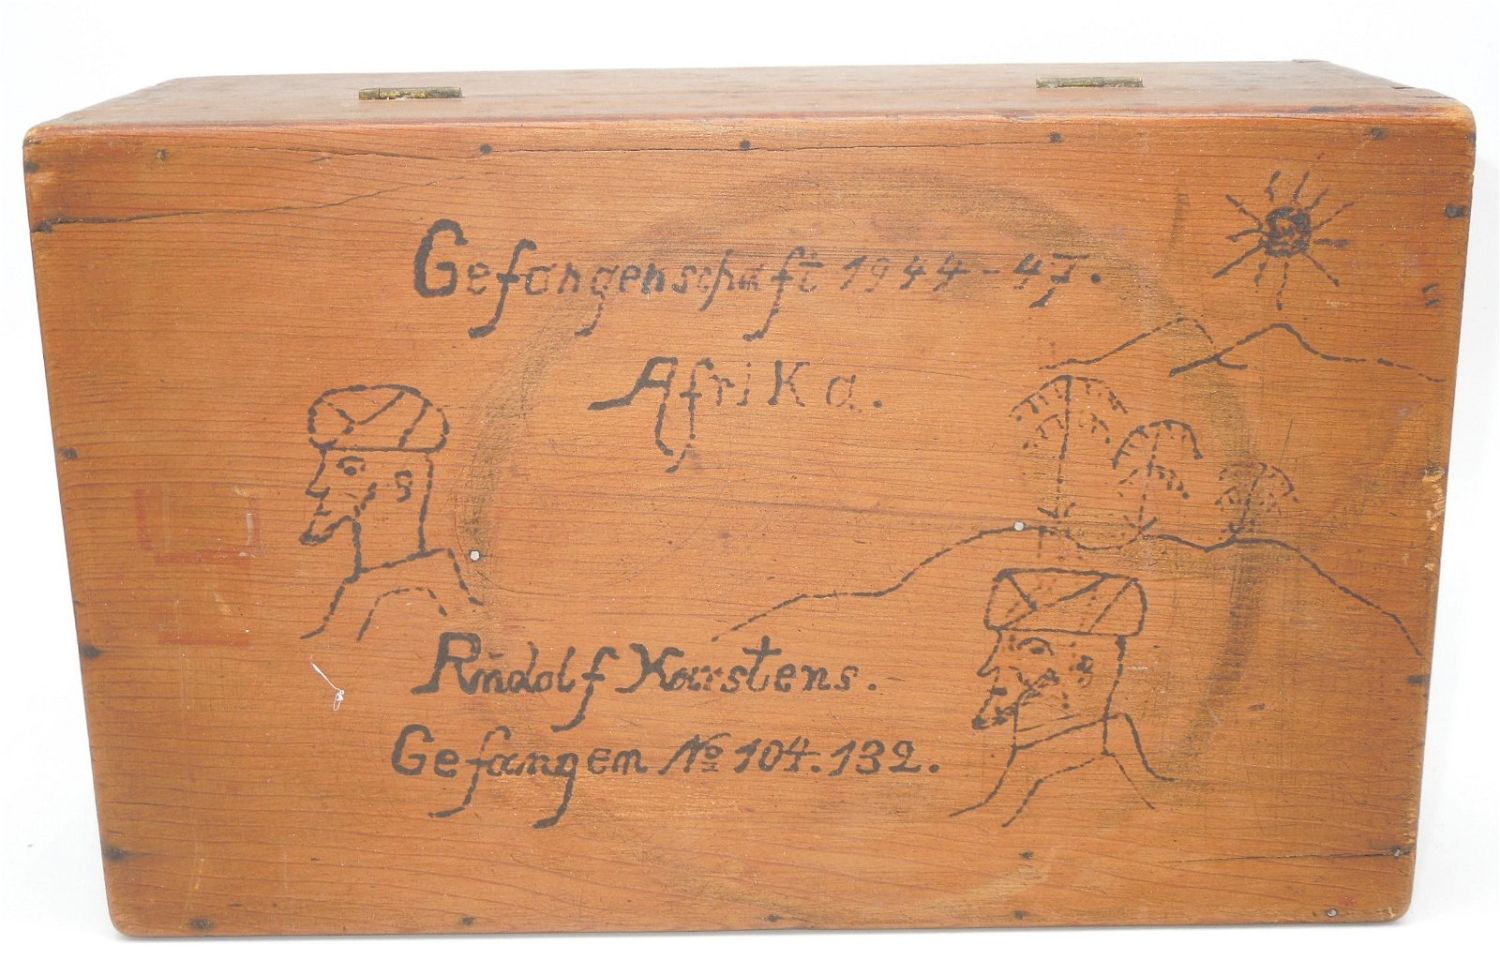 Gefangenschaft 1944-47.
Afrika.
Rudolf Karstens.
Gefangem № 104.132.